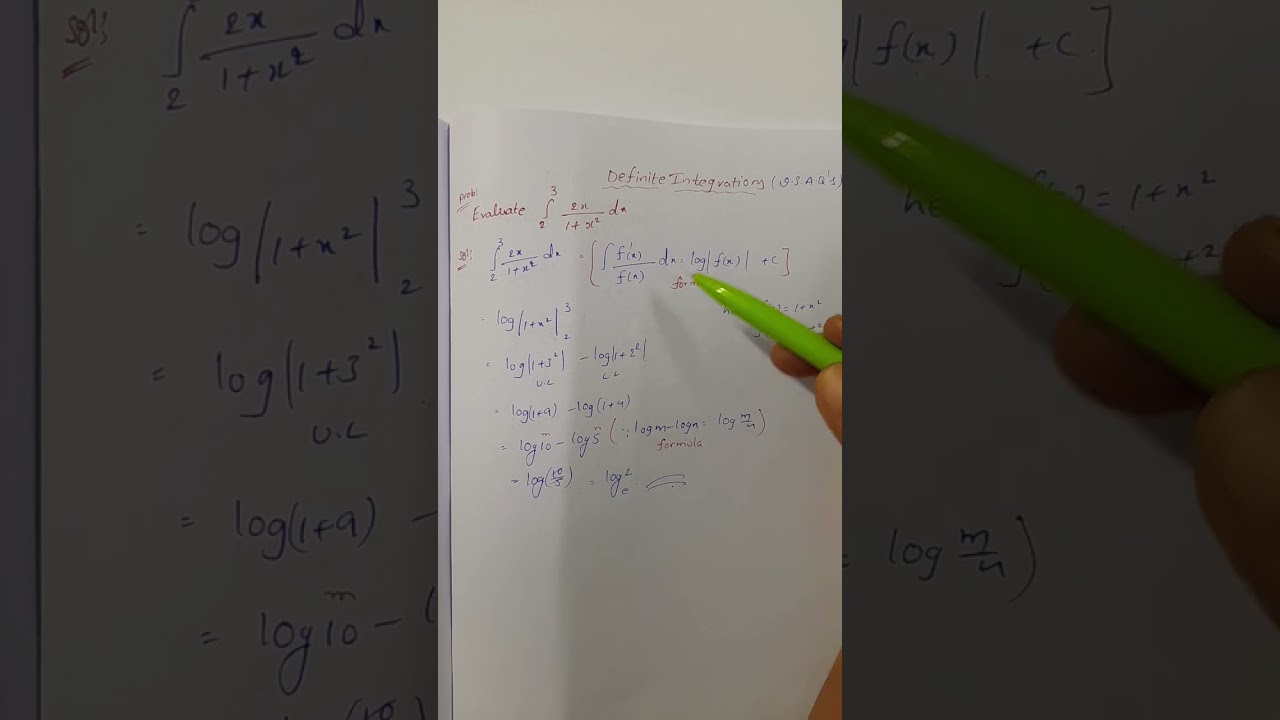 Definite Integrations (V.S.A.Q's)
Prob:
Evaluate ∫₂³ 2x/(1+x²) dx
Sol: ∫₂³ 2x/(1+x²) dx = [∫ f'(x)/f(x) dx = log|f(x)| + c]
= log|1+x²|₂³
f(x) = 1+x²
= log|1+3²| - log|1+2²|
U.L L.L
= log(1+9) - log(1+4)
= log 10 - log 5 (∵ log m - log n = log m/n)
m n formula
= log(10/5) = logₑ2